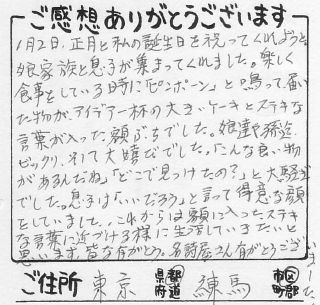 ご感想ありがとうございます
1月2日、正月と私の誕生日を祝ってくれようと
娘家族と息子が集まってくれました。楽しく
食事をしている時に「ピンポーン」と鳴って届い
た物がアイデア一杯の大きいケーキとステキな
言葉が入った額ぶちでした。娘達や孫迄
ビックリ、そして大喜びでした。「こんな良い物
があるんだね」「どこで見つけたの?」と大騒ぎ
でした。息子は「いいだろう」と言って得意な顔
をしていました。これからは額に入ったステキ
な言葉に近づける様に生活していきたいと
思います。皆な有がとう。名詩屋さん有がとうございました。
ご住所 東京 都道府県 練馬 市区町郡